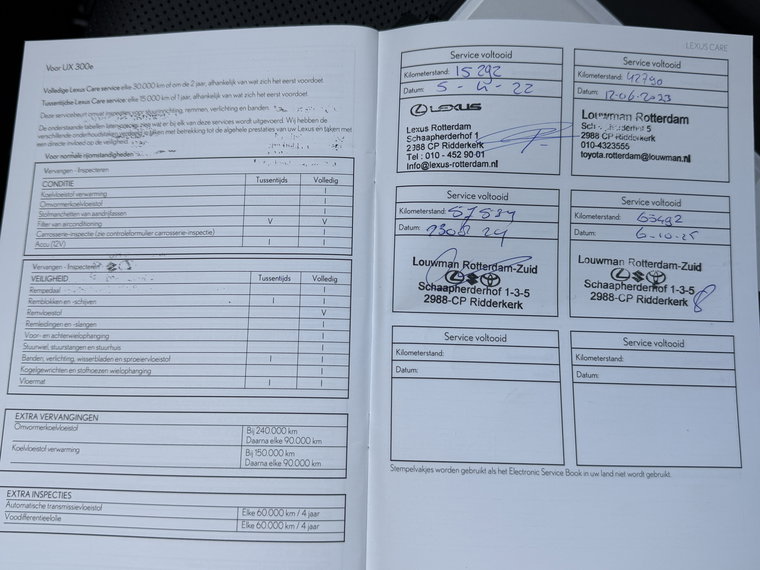 Voor UX 300e
Volledige Lexus Care service elke 30.000 km of om de 2 jaar, afhankelijk van wat zich het eerst voordoet.
Tussentijdse Lexus Care service elke 15.000 km of 1 jaar, afhankelijk van wat zich het eerst voordoet.
Deze servicebeurt omvat inspecties van stuurinrichting, remmen, verlichting en banden.
De onderstaande tabellen laten precies zien wat er bij elk van deze services wordt uitgevoerd. Wij hebben de
verschillende onderhoudsitems verdeeld in taken met betrekking tot de algehele prestaties van uw Lexus en taken met
een directe invloed op de veiligheid.
Voor normale rijomstandigheden
Vervangen - Inspecteren
CONDITIE Tussentijds Volledig
Koelvloeistof verwarming I
Omvormerkoelvloeistof I
Stofmanchetten van aandrijfassen I
Filter van airconditioning V V
Carrosserie-inspectie (zie controleformulier carrosserie-inspectie) I
Accu (12V) I I
Vervangen - Inspecteren
VEILIGHEID Tussentijds Volledig
Rempedaal I
Remblokken en -schijven I I
Remvloeistof V
Remleidingen en -slangen I
Voor- en achterwielophanging I
Stuurwiel, stuurstangen en stuurhuis I
Banden, verlichting, wisserbladen en sproeiervloeistof I I
Kogelgewrichten en stofhoezen wielophanging I
Vloermat I I
EXTRA VERVANGINGEN
Omvormerkoelvloeistof Bij 240.000 km
Daarna elke 90.000 km
Koelvloeistof verwarming Bij 150.000 km
Daarna elke 90.000 km
EXTRA INSPECTIES
Automatische transmissievloeistof Elke 60.000 km / 4 jaar
Voordifferentieelolie Elke 60.000 km / 4 jaar
LEXUS CARE
Service voltooid
Kilometerstand: 15 292
Datum: 5-4-22
LEXUS
Lexus Rotterdam
Schaapherderhof 1
2988 CP Ridderkerk
Tel : 010 - 452 90 01
Info@lexus-rotterdam.nl
Service voltooid
Kilometerstand: 42790
Datum: 12-06-2023
Louwman Rotterdam
5
2988 CP Ridderkerk
010-4323555
toyota.rotterdam@louwman.nl
Service voltooid
Kilometerstand:
Datum: 24
Louwman Rotterdam-Zuid
Schaapherderhof 1-3-5
2988-CP Ridderkerk
Service voltooid
Kilometerstand: 63492
Datum: 6-10-25
Louwman Rotterdam-Zuid
Schaapherderhof 1-3-5
2988-CP Ridderkerk
Service voltooid
Kilometerstand:
Datum:
Service voltooid
Kilometerstand:
Datum:
Stempelvakjes worden gebruikt als het Electronic Service Book in uw land niet wordt gebruikt.